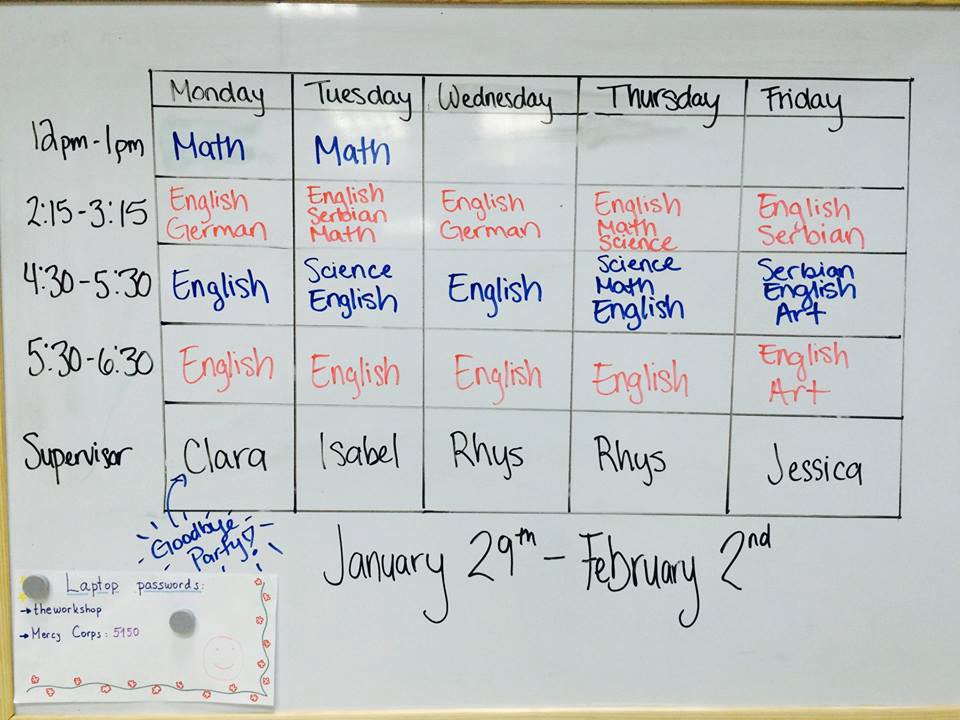 Monday Tuesday Wednesday Thursday Friday
12pm-1pm Math Math
2:15-3:15 English English English English English
German Serbian German Math Serbian
Math Science
4:30-5:30 English Science English Science Serbian
English Math English
English Art
5:30-6:30 English English English English English
Art
Supervisor Clara Isabel Rhys Rhys Jessica
Goodbye
Party!
January 29th - February 2nd
Laptop passwords:
→theworkshop
→Mercy Corps: 5150